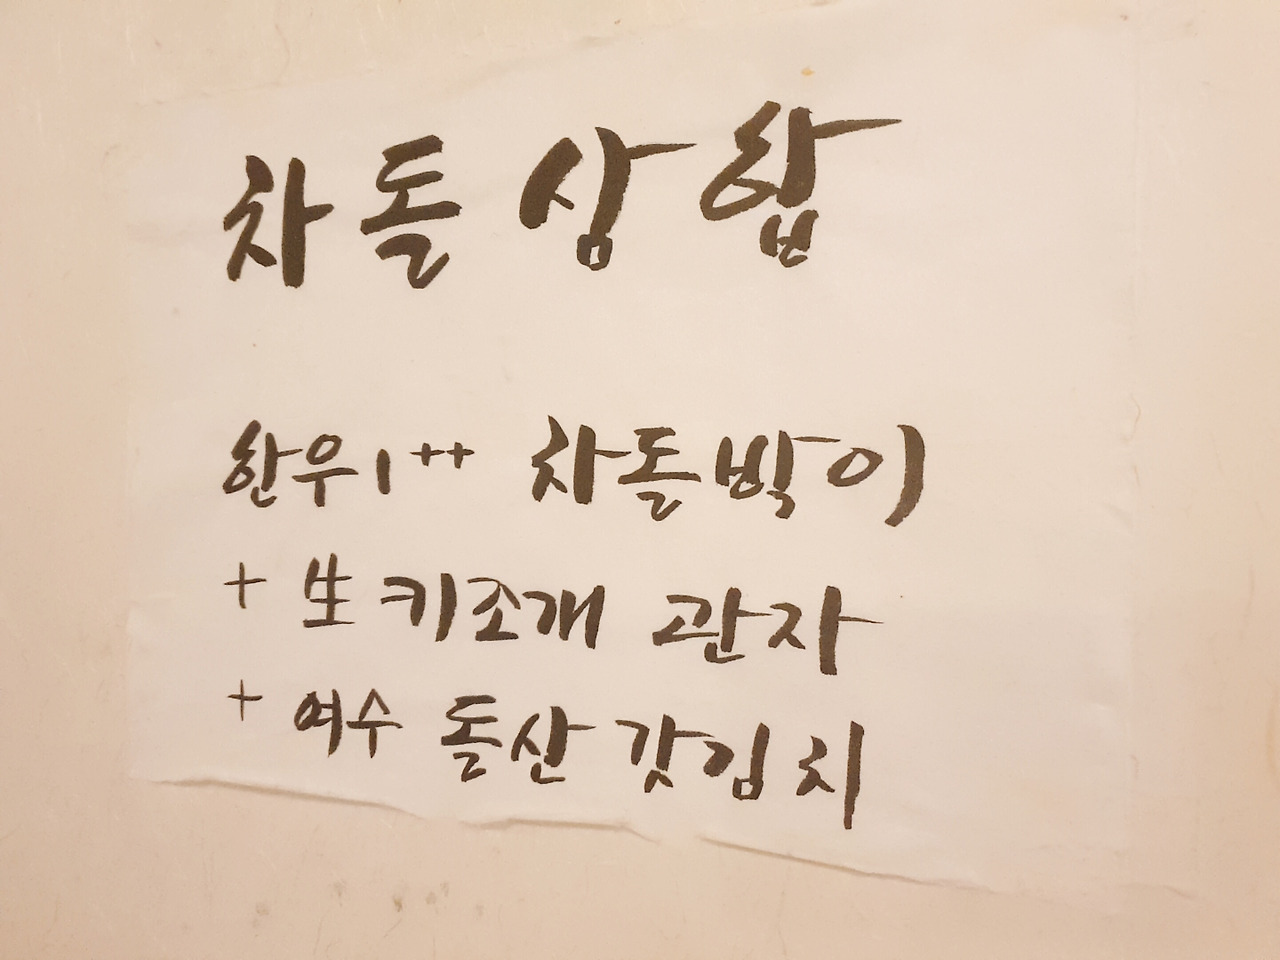 차돌상합
한우1++ 차돌박이
+ 生키조개 관자
+ 여수 돌산 갓김치